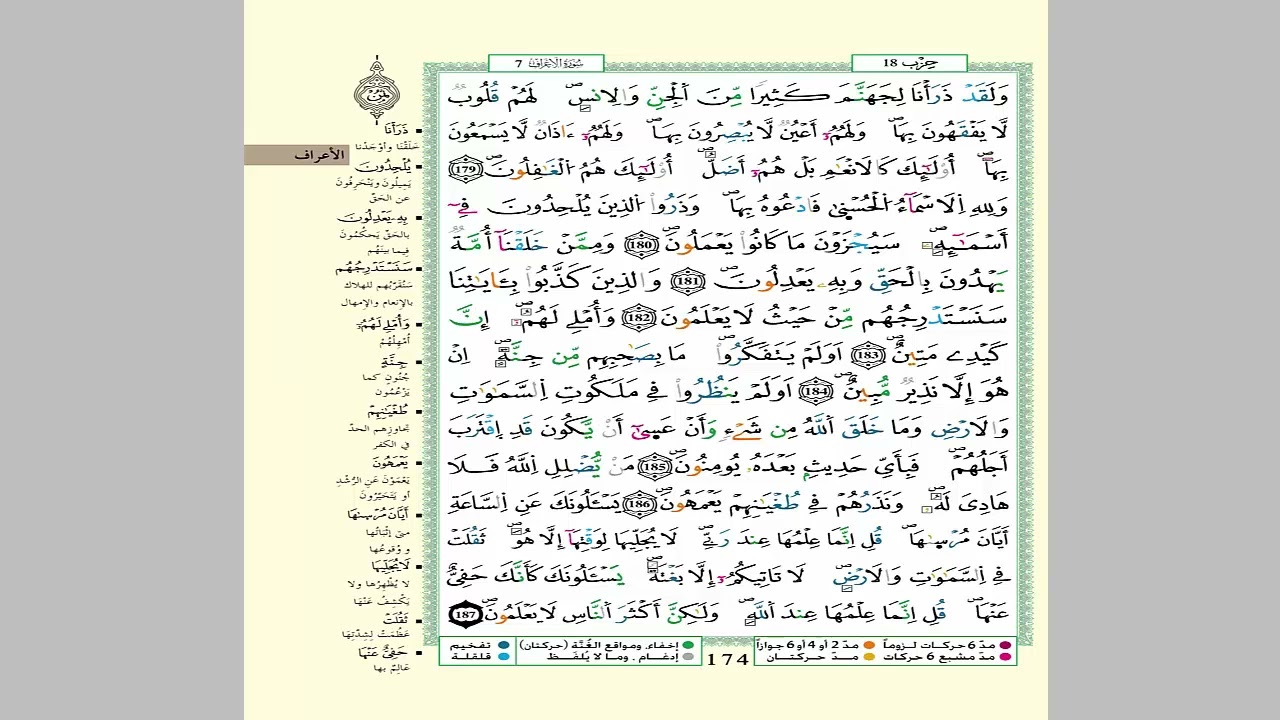 سُورَةُ الأَعْرَاف 7
حِزْب 18
وَلَقَدْ ذَرَأْنَا لِجَهَنَّمَ كَثِيرًا مِّنَ اَلْجِنِّ وَالِانسِ لَهُمْ قُلُوبٌ
لَّا يَفْقَهُونَ بِهَا وَلَهُمُۥٓ أَعْيُنٌ لَّا يُبْصِرُونَ بِهَا وَلَهُمُۥٓ ءَاذَانٌ لَّا يَسْمَعُونَ
بِهَا أُوْلَٰٓئِكَ كَالَانْعَٰمِ بَلْ هُمُۥٓ أَضَلُّ أُوْلَٰٓئِكَ هُمُ الْغَٰفِلُونَ 179
وَلِلهِ اِلَاسْمَآءُ الْحُسْنَىٰ فَادْعُوهُ بِهَا وَذَرُواْ الذِينَ يُلْحِدُونَ فِےٓ
أَسْمَٰٓئِهِۦ سَيُجْزَوْنَ مَا كَانُواْ يَعْمَلُونَ 180 وَمِمَّنْ خَلَقْنَآ أُمَّةٌ
يَهْدُونَ بِالْحَقِّ وَبِهِۦ يَعْدِلُونَ 181 وَالذِينَ كَذَّبُواْ بِـَٔايَٰتِنَا
سَنَسْتَدْرِجُهُم مِّنْ حَيْثُ لَا يَعْلَمُونَ 182 وَأُمْلِے لَهُمُۥٓ إِنَّ
كَيْدِے مَتِينٌ 183 اَوَلَمْ يَتَفَكَّرُواْ مَا بِصَٰحِبِهِم مِّن جِنَّةٍ اِنْ
هُوَ إِلَّا نَذِيرٌ مُّبِينٌ 184 اَوَلَمْ يَنظُرُواْ فِے مَلَكُوتِ اِلسَّمَٰوَٰتِ
وَالَارْضِ وَمَا خَلَقَ اَللَّهُ مِن شَےْءٍ وَأَنْ عَسَىٰٓ أَنْ يَّكُونَ قَدِ اِقْتَرَبَ
أَجَلُهُمْ فَبِأَيِّ حَدِيثٍ بَعْدَهُۥ يُومِنُونَ 185 مَنْ يُّضْلِلِ اِللَّهُ فَلَا
هَادِيَ لَهُۥ وَنَذَرُهُمْ فِے طُغْيَٰنِهِمْ يَعْمَهُونَ 186 يَسْـَٔلُونَكَ عَنِ اِلسَّاعَةِ
أَيَّانَ مُرْسَىٰهَا قُلِ اِنَّمَا عِلْمُهَا عِندَ رَبِّے لَا يُجَلِّيهَا لِوَقْتِهَآ إِلَّا هُوَ ثَقُلَتْ
فِے اِلسَّمَٰوَٰتِ وَالَارْضِ لَا تَاتِيكُمُۥٓ إِلَّا بَغْتَةً يَسْـَٔلُونَكَ كَأَنَّكَ حَفِيٌّ
عَنْهَا قُلِ اِنَّمَا عِلْمُهَا عِندَ اَللَّهِ وَلَٰكِنَّ أَكْثَرَ اَلنَّاسِ لَا يَعْلَمُونَ 187
ذَرَأْنَا
خَلَقْنَا وأوْجَدْنا
الأعراف
يُلْحِدُونَ
يَمِيلُونَ ويَنْحَرِفُونَ
عن الحَقّ
بِهِۦ يَعْدِلُونَ
بالحَقّ يَحكُمُونَ
فِيما بينَهُم
سَنَسْتَدْرِجُهُم
سَنُقَرِّبُهم للهلاك
بالإنعام والإمهال
وَأُمْلِے لَهُمُۥٓ
أُمْهِلُهُمْ
جِنَّةٍ
جُنُونٍ كما
يَزعُمُون
طُغْيَٰنِهِمْ
تَجاوُزِهم الحدّ
في الكفر
يَعْمَهُونَ
يَعْمَوْنَ عن الرُّشْدِ
أو يَتَحَيَّرُونَ
أَيَّانَ مُرْسَىٰهَا
متى إثْبَاتُها
و وُقُوعُها
لَا يُجَلِّيهَا
لا يُظْهِرُها ولا
يَكْشِفُ عَنْهَا
ثَقُلَتْ
عَظُمَتْ لِشِدَّتِهَا
حَفِيٌّ عَنْهَا
عَالِمٌ بها
مدّ 6 حركات لـزومـاً
مدّ 2 أو 4 أو 6 جوازاً
مدّ مشبع 6 حركات
مـدّ حركتـان
174
إخفاء، ومواقع الغُنَّة (حركتان)
إدغـام ، ومـا لا يُلفَـظ
تفخيم
قلقلة